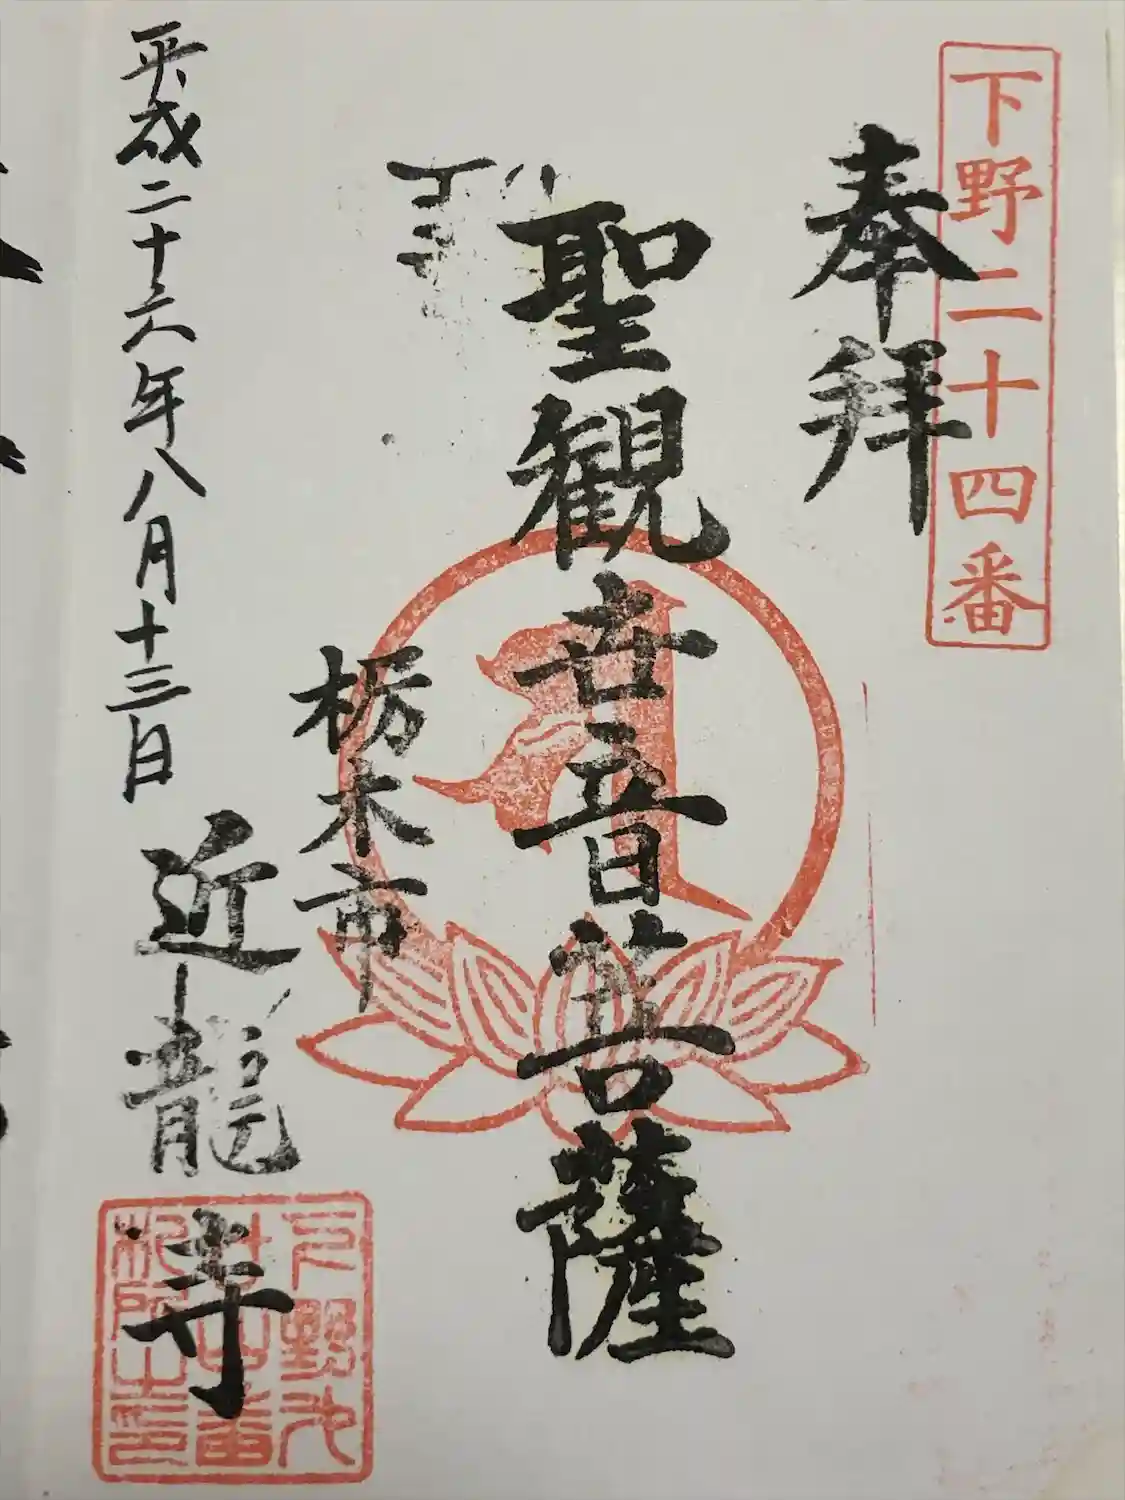 下野二十四番
奉拝
聖観世音菩薩
栃木市
平成二十六年八月十三日
近龍寺